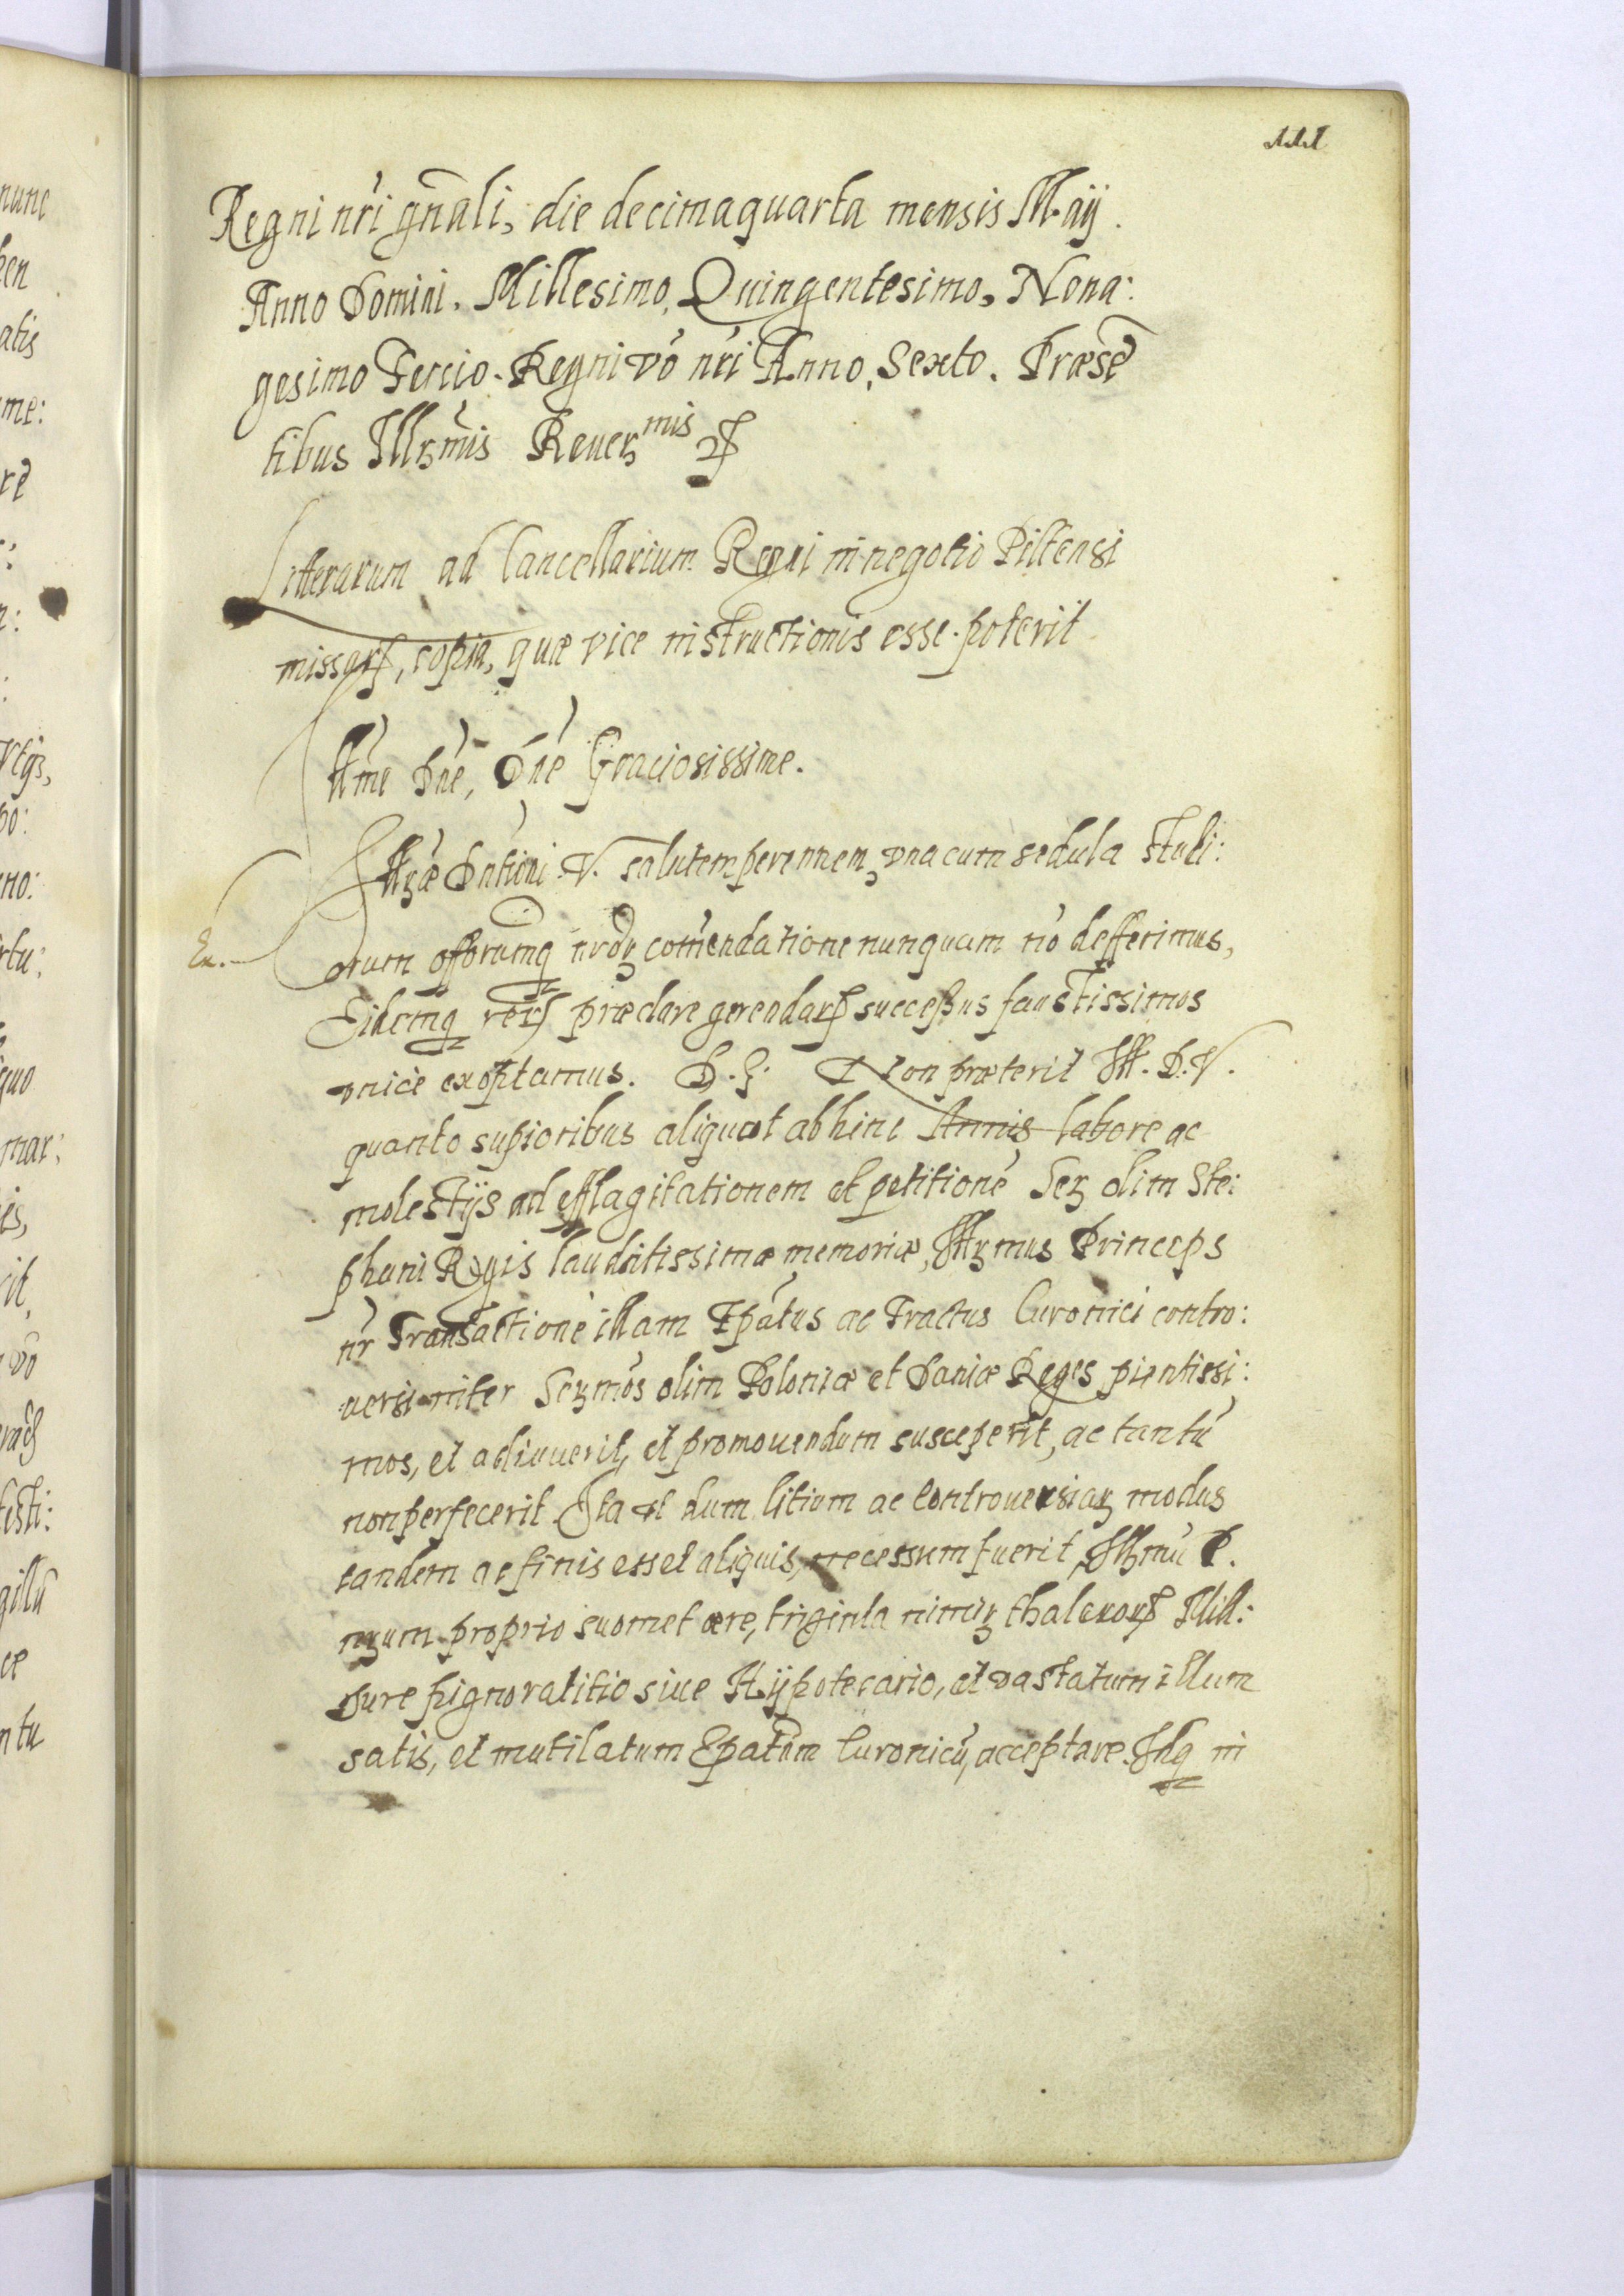 Regni nr̃i gñali, die decimaquarta mensis Maij.
Anno Domini. Millesimo, Quingentesimo, Nona:
gesimo Tercio. Regni vò nr̃i Anno, Sexto. Præsē
tibus Illꝫmis Reuerꝫmis
Litterarum ad Cancellarium Regni in negotio Piltensi
missarꝝ, copia, quæ vice instructionis esse poterit
Illme Dñe, Dñe Graciosissime.
Illꝫæ Dñtioni V. salutem perennem, vna cum sedula studi:
orum offorumq̃ nrorꝫ com̃endatione nunquam nõ defferimus,
Eidemq̃ rerꝝ præclare gerendarꝝ succeßus faustissimos
vnicè exoptamus. Non præterit Ill. D. V.
quanto supioribus aliquot abhinc Annis labore ac
molestijs ad efflagitationem et petitionẽ Serꝫ olim Ste:
phani Regis laudatissimæ memoriæ, Illꝫmus Princeps
nr̃ Transactionẽ illam Epãtus ac Tractus Curonici contro:
uersi inter Serꝫmos olim Poloniæ et Daniæ Reges pientissi:
mos, et adiuuerit, et promouendum susceperit, ac tantũ
non perfecerit. Ita vt dum litium ac controuersiarꝫ modus
tandem ac finis esset aliquis, necessum fuerit, Illꝫmũ P.
nrꝫum proprio suomet ære, triginta nimirꝫ thalerorꝝ Mill:
Iure pignoratitio siue Hypotecario, et vastatum illum
satis, et mutilatum Epatũm Curonicũ, acceptare. Idq̃ in